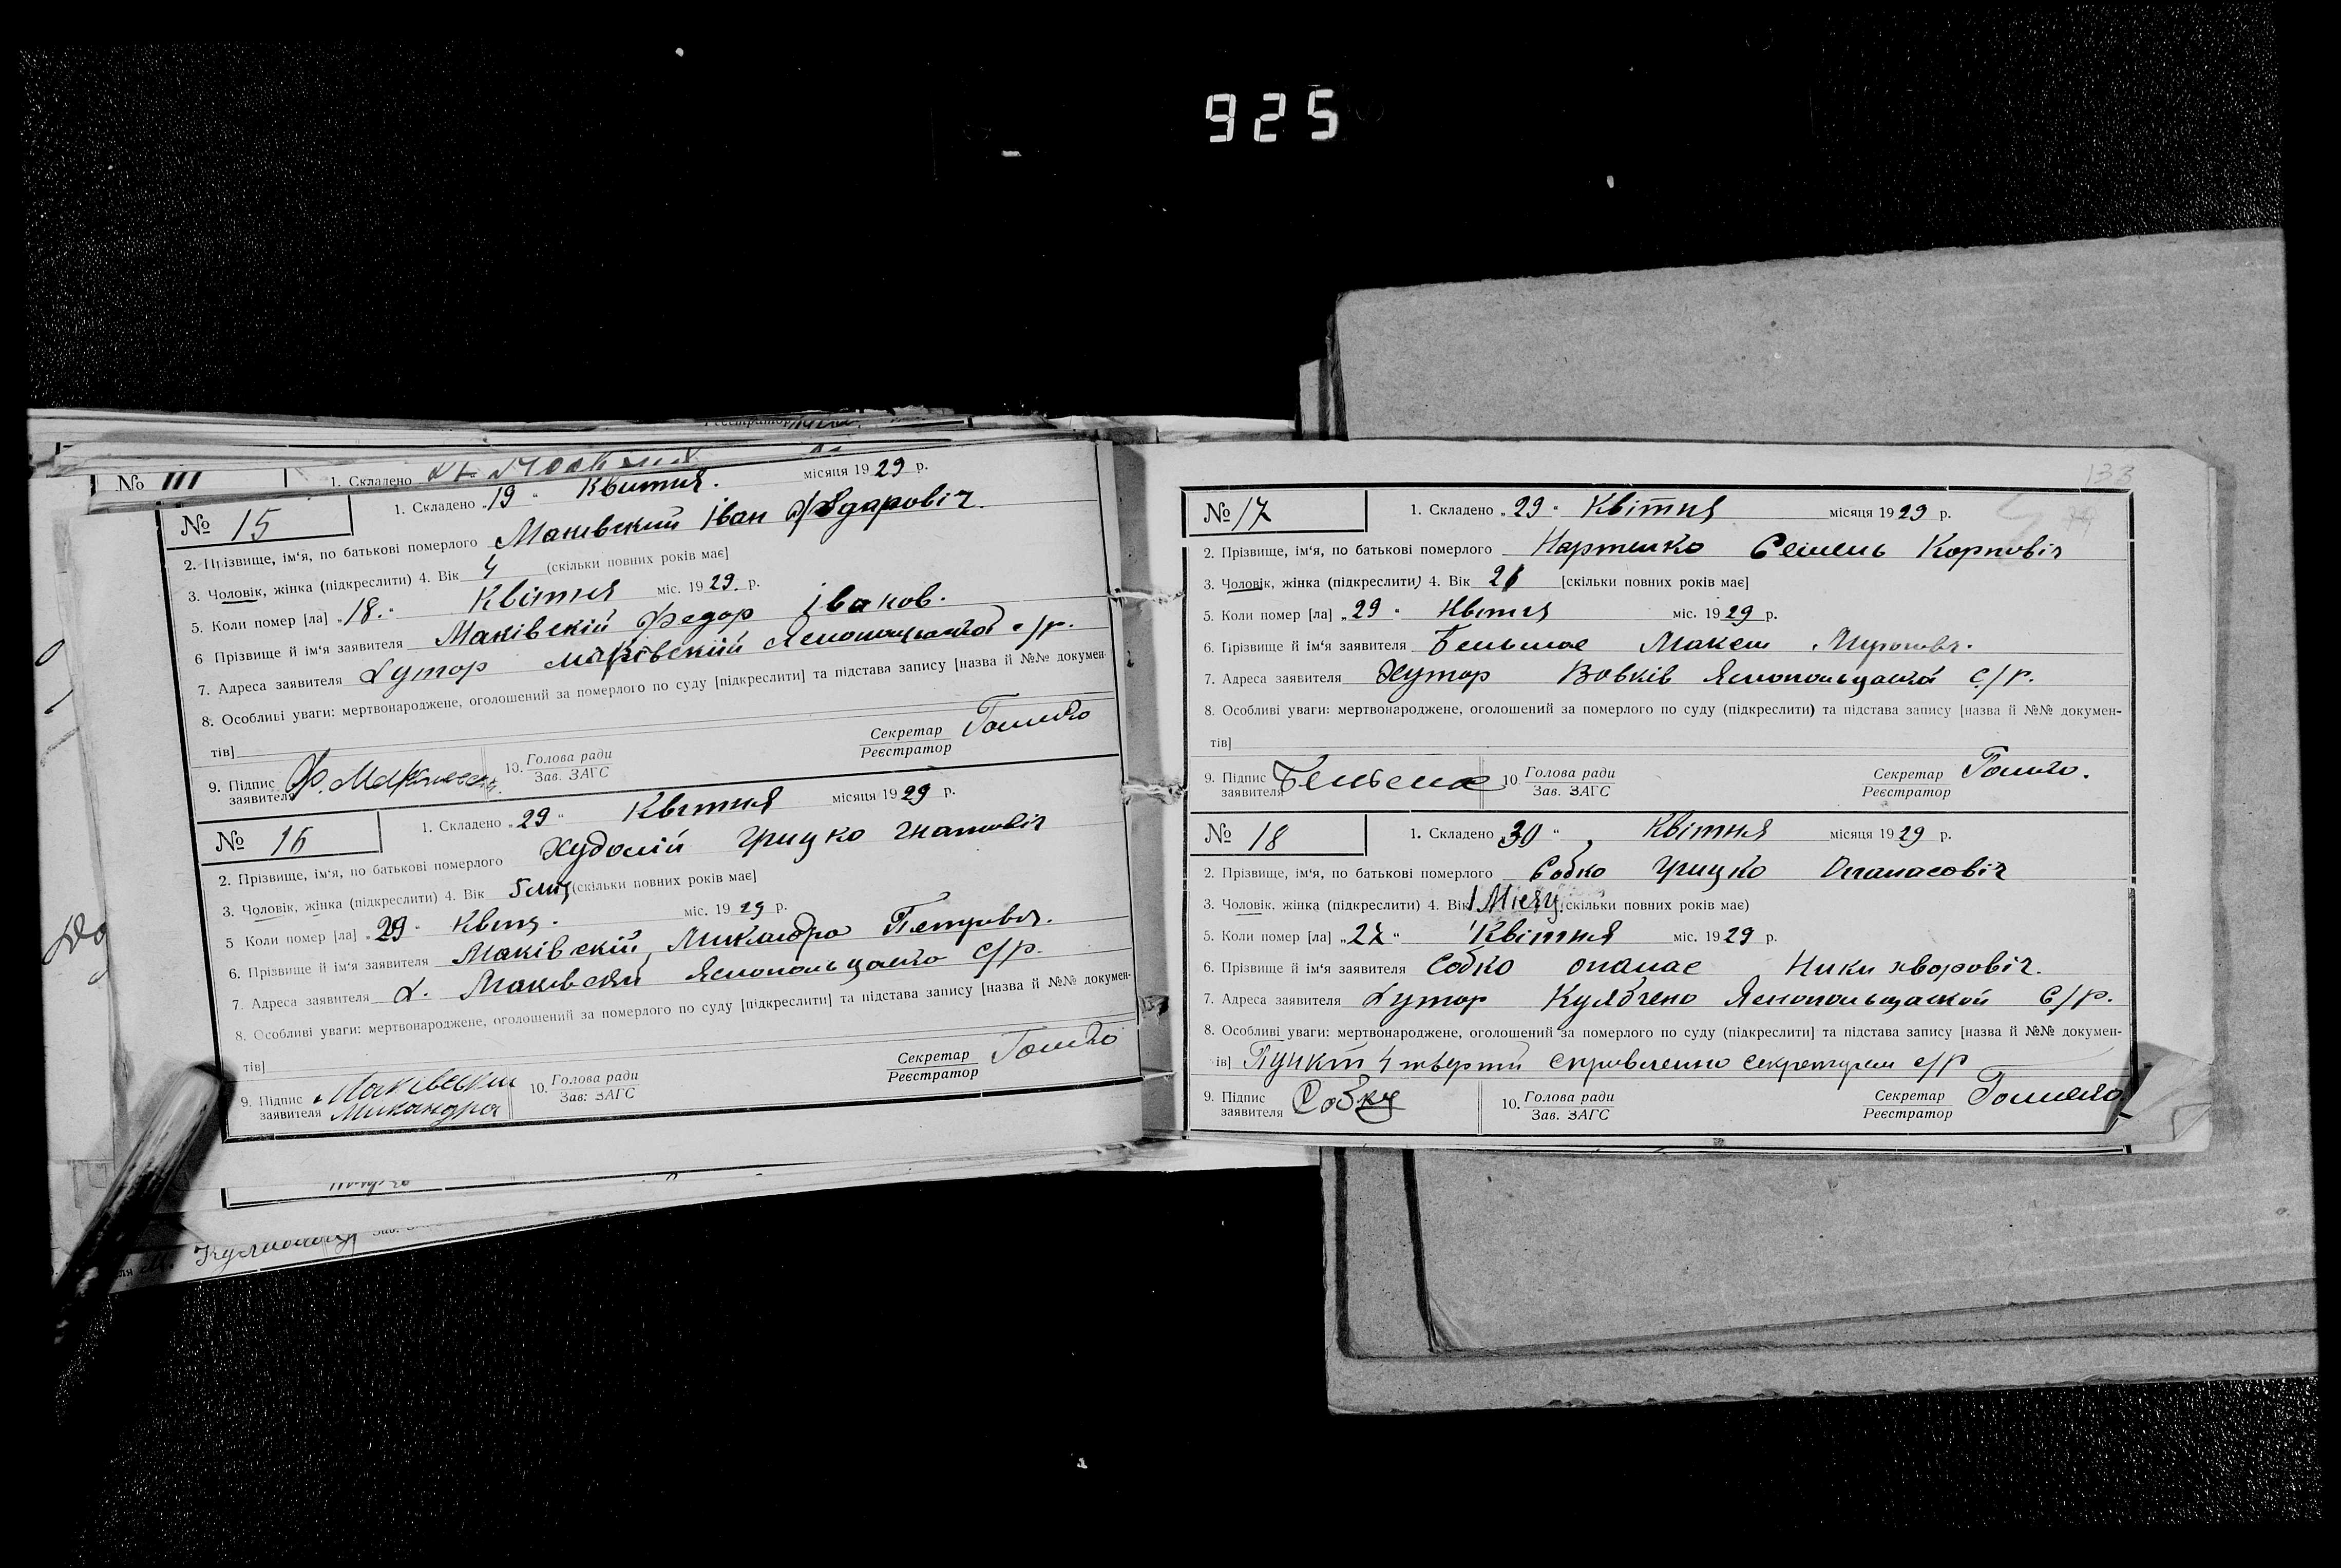 925
№ III 1. Складено
№ 15 1. Складено „19“ Квитня. місяця 1929 р.
2. Прізвище, ім‘я, по батькові померлого Маківский Іван Фёдаровіч.
3. Чоловік, жінка (підкреслити) 4. Вік 4 (скільки повних років має]
5. Коли помер [ла] „18.“ Квітня міс. 1929. р.
6 Прізвище й ім‘я заявителя Маківскій Федор Іваков.
7. Адреса заявителя Хутор Маківскій Яснопольщаной с/р.
8. Особливі уваги: мертвонароджене, оголошений за померлого по суду [підкреслити] та підстава запису [назва й №№ докумен-
тів]
9. Підпис заявителя Ф. 10. Голова ради Зав. ЗАГС Секретар Реєстратор
№ 16 1. Складено „29“ Квітня місяця 1929 р.
2. Прізвище, ім‘я, по батькові померлого Худолій Грицко Гнатовіч
3. Чоловік, жінка (підкреслити) 4. Вік 5 міц (скільки повних років має]
5 Коли помер [ла] „29“ Квітн. міс. 1929 р.
6. Прізвище й ім‘я заявителя Маківскій, Петрович.
7. Адреса заявителя х. Маківскій с/р.
8. Особливі уваги: мертвонароджене, оголошений за померлого по суду [підкреслити] та підстава запису [назва й №№ докумен-
тів]
9. Підпис заявителя Маківский Микандра 10. Голова ради Зав: ЗАГС Секретар Реєстратор
133
№ 17 1. Складено „29“ Квітня місяця 1929 р.
2. Прізвище, ім‘я, по батькові померлого Семень Корповіч
3. Чоловік, жінка (підкреслити) 4. Вік [скільки повних років має]
5. Коли помер [ла] „29“ Квітня міс. 1929 р.
6. Прізвище й ім‘я заявителя Макси
7. Адреса заявителя Хутор Вовків с/р.
8. Особливі уваги: мертвонароджене, оголошений за померлого по суду (підкреслити) та підстава запису [назва й №№ докумен-
тів]
9. Підпис заявителя 10. Голова ради Зав. ЗАГС Секретар Реєстратор
№ 18 1. Складено „30“ Квітня місяця 1929 р.
2. Прізвище, ім‘я, по батькові померлого Собко Грицко Опанасовіч
3. Чоловік, жінка (підкреслити) 4. Вік 1 Місяц. скільки повних років має)
5. Коли помер [ла] „27“ Квітня міс. 1929 р.
6. Прізвище й ім‘я заявителя Собко опанас Никихворовіч.
7. Адреса заявителя Хутор Кулябчено Яснопольщаской с/р.
8. Особливі уваги: мертвонароджене, оголошений за померлого по суду (підкреслити] та підстава запису [назва й №№ докумен-
ів] Пункт 4 твертй справленно секретарем с/р
9. Підпис заявителя Собко 10. Голова ради Зав. ЗАГС Секретар Реєстратор